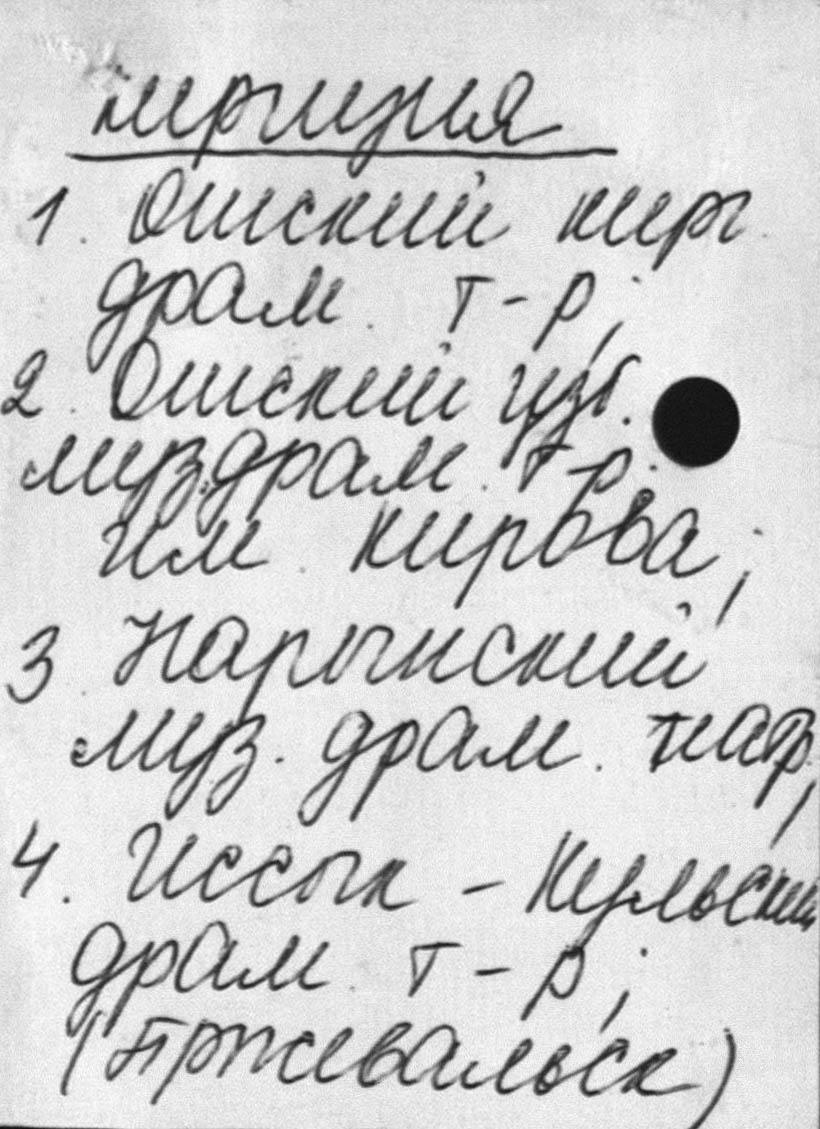 киргизия
1. Ошский кирг
драм. т-р;
2. Ошский узб.
муз.драм. т-р.
им. Кирова;
3. Нарынский
муз. драм. театр,
4. Иссык - Кульский
драм. т-р;
(Пржевальск)